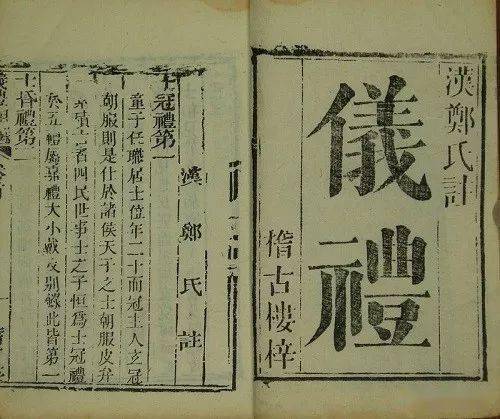 漢鄭氏註
儀禮
稽古樓梓
漢鄭氏註
士冠禮第一
童子任職居士位年二十而冠主人玄冠
朝服則是仕於諸侯天子之士朝服皮弁
素積古者四民世事士之子恒爲士冠禮
於五禮屬嘉禮大小戴及別錄此皆第一
士昏禮第二